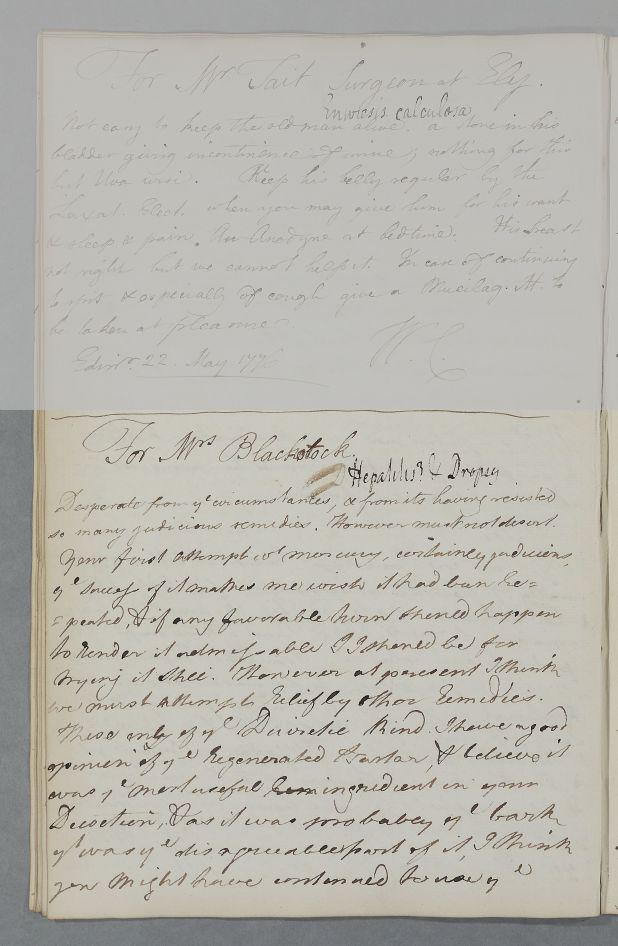 For Mr Tait Surgeon at Ely.
Enuresis calculosa
Not easy to keep the old man alive. a stone in his
bladder giving incontinence of urine; nothing for this
but Uva ursi. Keep his belly regular by the
Laxat. Elect. when you may give him for his want
of sleep & pain. An Anodyne at bedtime. His breast
not right but we cannot help it. In case of continuing
& especially of cough give a Mucilag. M. to
be taken at pleasure.
Edinr. 22. May 1776
W. C.
For Mrs Blackstock.
Hepatitis? & Dropsy
Desperate from ye circumstances, & from its having resisted
so many judicious remedies. However must not desert.
Your first attempt wt mercury, certainly judicious,
ye success of it makes me wish it had been re=
=peated, & if any favorable turn should happen
to render it admissable I should be for
trying it still. However at present I think
we must attempt relief by other remedies.
These only of ye Diuretic kind. I have a good
opinion of ye Regenerated Tartar, & believe it
was ye most useful ingredient in your
Decoction, & as it was probabley ye bark
yt was ye disagreeable part of it, I think
you might have continued to use ye